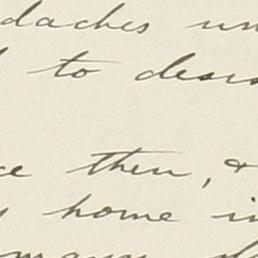 daches un
to desir
ce then, &
home in
many